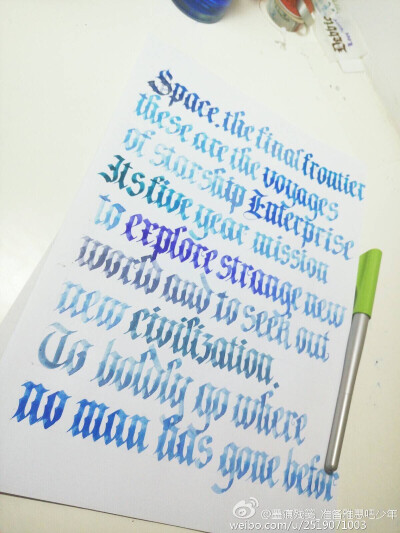 Space. the final frontier
these are the voyages
of starship Enterprise
Its five year mission
to explore strange new
world and to seek out
new civilization.
To boldly go where
no man has gone befor
Debbie
weibo.com/u/2519071003